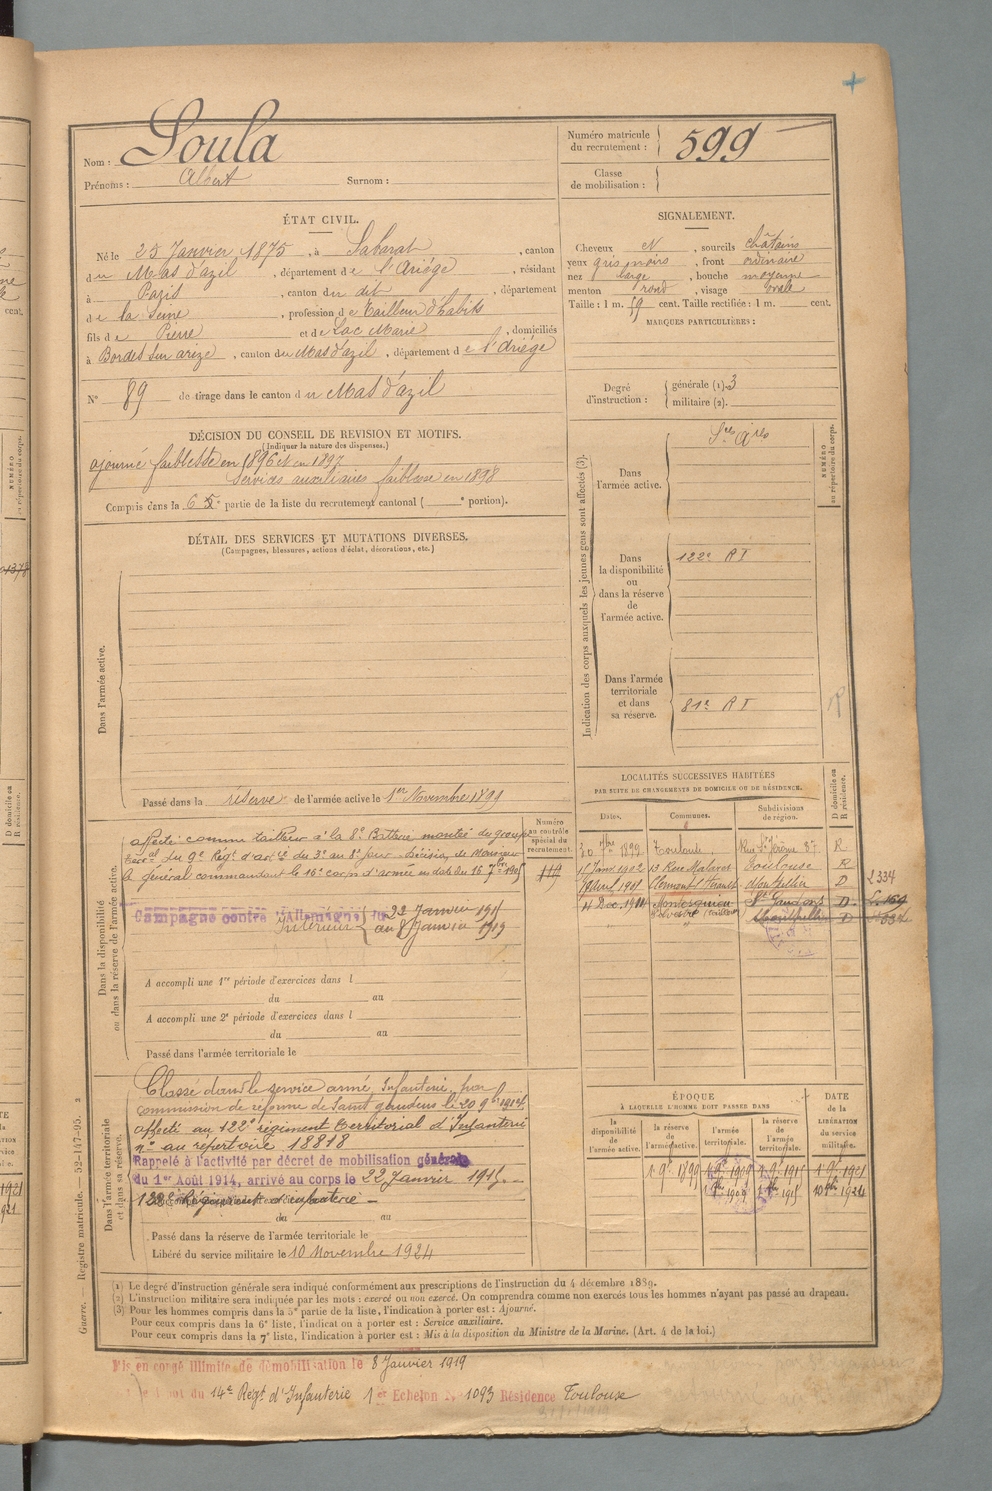 Nom : Soula
Prénoms : Albert Surnom :
Numéro matricule du recrutement : 599
Classe de mobilisation :
ÉTAT CIVIL.
Né le 25 Janvier 1875, à Sabarat, canton
du Mas d'azil, département de l'Ariège, résidant
à Paris, canton du dit, département
de la Seine, profession de Tailleur d'habits
fils de Pierre et de Lac Marie, domiciliés
à Bordes sur arize, canton du Mas d'azil, département de l'Ariège
N° 89 de tirage dans le canton du Mas d'azil
SIGNALEMENT.
Cheveux N, sourcils châtains
yeux gris noirs, front ordinaire
nez large, bouche moyenne
menton rond, visage ovale
Taille : 1 m. 59 cent. Taille rectifiée : 1 m. cent.
MARQUES PARTICULIÈRES :
Degré d'instruction : générale (1). 3
militaire (2).
DÉCISION DU CONSEIL DE REVISION ET MOTIFS.
(Indiquer la nature des dispenses.)
ajourné faiblesse en 1896 et en 1897
Services auxiliaires faiblesse en 1898
Compris dans la 6e partie de la liste du recrutement cantonal ( e portion).
DÉTAIL DES SERVICES ET MUTATIONS DIVERSES.
(Campagnes, blessures, actions d'éclat, décorations, etc.)
Dans l'armée active.
Passé dans la réserve de l'armée active le 1er Novembre 1899
Indication des corps auxquels les jeunes gens sont affectés (3).
NUMÉRO au répertoire du corps.
Dans l'armée active.
Dans la disponibilité ou dans la réserve de l'armée active.
122e R I
Dans l'armée territoriale et dans sa réserve.
81e R I
LOCALITÉS SUCCESSIVES HABITÉES
PAR SUITE DE CHANGEMENTS DE DOMICILE OU DE RÉSIDENCE.
Dates. Communes. Subdivisions de région. D domicile ou R résidence.
1899 Toulouse. R
1902 13 Rue Malaret Toulouse R
1908 Clermont l'Hérault Montpellier D 2334
4 Dec. 1911 Montesquieu St Gaudens D
Montpellier D
Dans la disponibilité ou dans la réserve de l'armée active.
Numéro au contrôle spécial du recrutement.
affecté comme tailleur à la 8e Batterie montée du groupe
du 9e Régt d'artie du 3e au 8e jour Décision de Monsieur
le général commandant le 16e corps d'armée en date du 16 7bre 1905
119
Campagne contre l'Allemagne du 22 Janvier 1915
Intérieur au 8 Janvier 1919
A accompli une 1re période d'exercices dans l
du au
A accompli une 2e période d'exercices dans l
du au
Passé dans l'armée territoriale le
Dans l'armée territoriale et dans sa réserve.
Classé dans le service armé, Infanterie, par
commission de réforme de Saint gaudens le 20 9bre 1914
affecté au 122e régiment territorial d'Infanterie
n° au répertoire 18818
Rappelé à l'activité par décret de mobilisation générale
du 1er Août 1914, arrivé au corps le 22 Janvier 1915.
122e Régiment d'infanterie
du au
Passé dans la réserve de l'armée territoriale le
Libéré du service militaire le 10 Novembre 1924
ÉPOQUE
À LAQUELLE L'HOMME DOIT PASSER DANS
la disponibilité de l'armée active. la réserve de l'armée active. l'armée territoriale. la réserve de l'armée territoriale. DATE de la LIBÉRATION du service militaire.
1899 1909 1915 1921
1909 1915 1924
(1) Le degré d'instruction générale sera indiqué conformément aux prescriptions de l'instruction du 4 décembre 1889.
(2) L'instruction militaire sera indiquée par les mots : exercé ou non exercé. On comprendra comme non exercés tous les hommes n'ayant pas passé au drapeau.
(3) Pour les hommes compris dans la 5e partie de la liste, l'indication à porter est : Ajourné.
Pour ceux compris dans la 6e liste, l'indication à porter est : Service auxiliaire.
Pour ceux compris dans la 7e liste, l'indication à porter est : Mis à la disposition du Ministre de la Marine. (Art. 4 de la loi.)
Guerre. — Registre matricule. — 52-147-95.
Mis en congé illimité de démobilisation le 8 Janvier 1919
du 14e Régt d'Infanterie 1er Echelon N° 1093 Résidence Toulouse